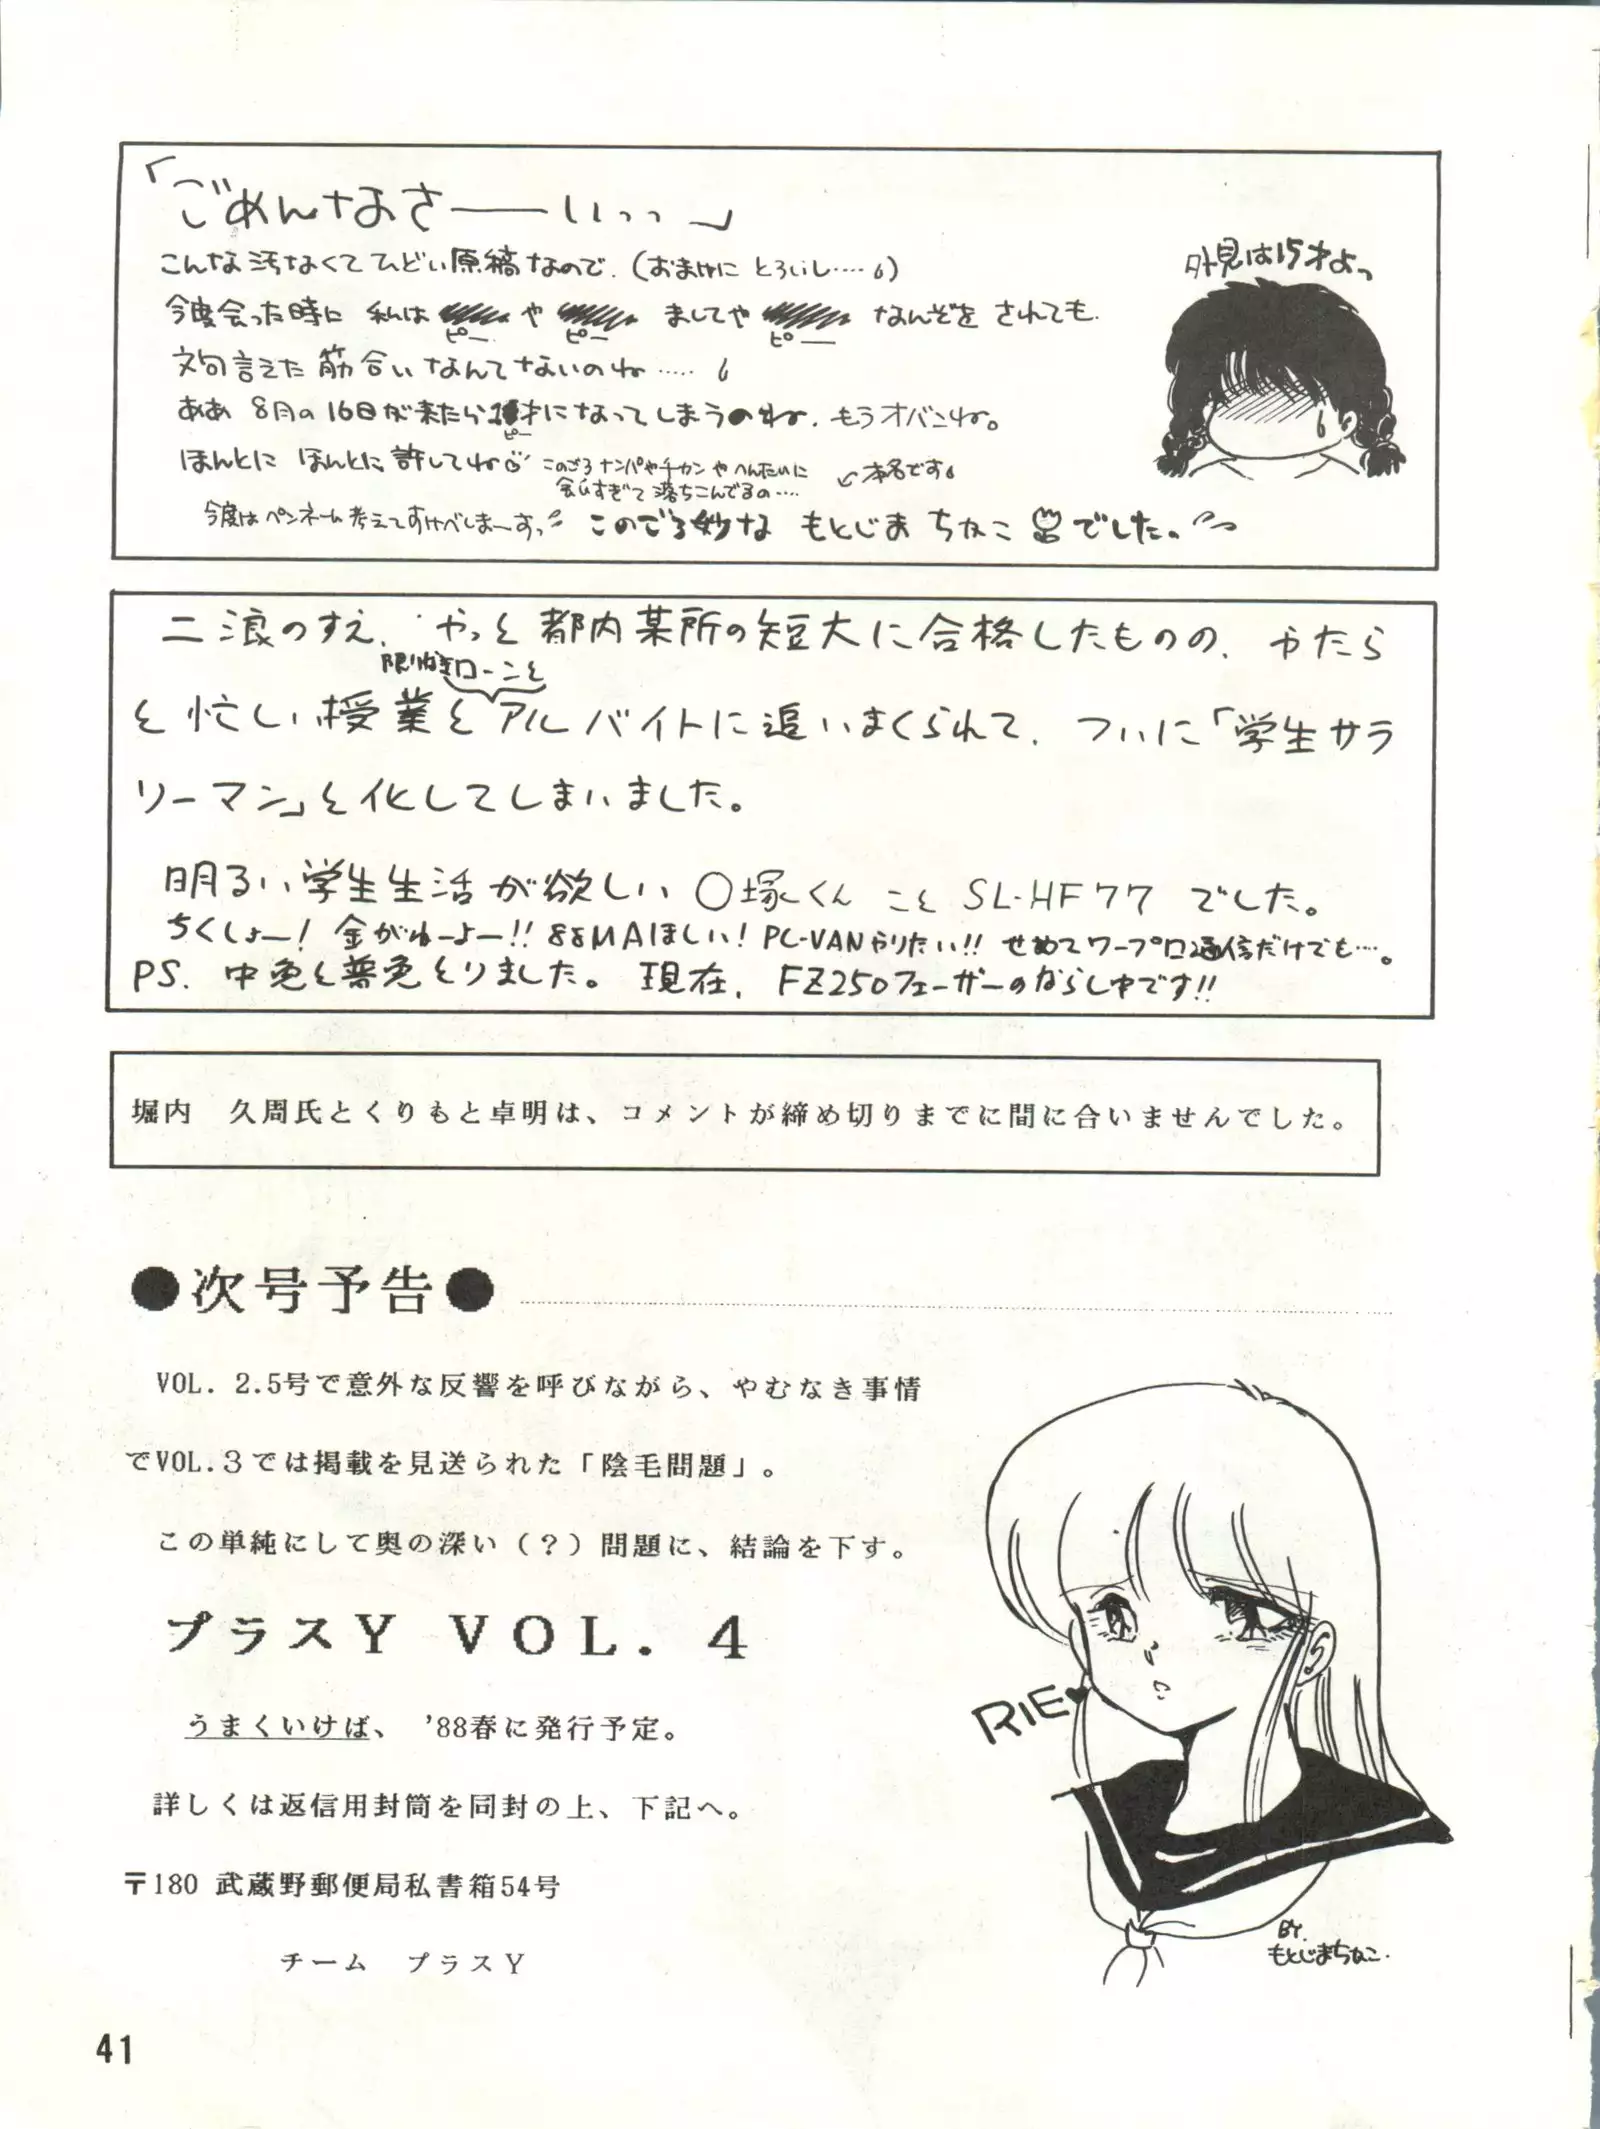 「ごめんなさ――いっっ」
こんな汚なくてひどい原稿なので、(おまけに とろいし‥‥)
外見は15才よっ
今度会った時に 私は や ましてや なんぞを されても、
ピー ピー ピー
文句言えた 筋合い なんてないのね‥‥
ああ 8月の16日が来たら 才になってしまうのね、もうオバンね。
ピー
ほんとに ほんとに、許してね
このごろ ナンパやチカンや へんたいに
会いすぎて 落ちこんでるの‥‥
本名です
今度は ペンネーム考えてすけべしまーすっ
このごろ妙な もとじま ちなこ でした。
二浪のすえ、やっと都内某所の短大に合格したものの、やたら
限りなきローンこと
と忙しい授業とアルバイトに追いまくられて、ついに「学生サラ
リーマン」と化してしまいました。
明るい学生生活が欲しい 〇塚くん こと SL-HF77 でした。
ちくしょー! 金がねーよー!! 88MAほしい! PC-VANやりたい!! せめてワープロ通信だけでも‥‥。
PS. 中免と普免とりました。 現在、FZ250フェーザーのならし中です!!
堀内 久周氏とくりもと卓明は、コメントが締め切りまでに間に合いませんでした。
●次号予告●
VOL. 2.5号で意外な反響を呼びながら、やむなき事情
でVOL.3では掲載を見送られた「陰毛問題」。
この単純にして奥の深い(?)問題に、結論を下す。
プラスY VOL. 4
うまくいけば、 '88春に発行予定。
RIE♥
詳しくは返信用封筒を同封の上、下記へ。
〒180 武蔵野郵便局私書箱54号
チーム プラスY
BY.
もとじまちなこ.
41